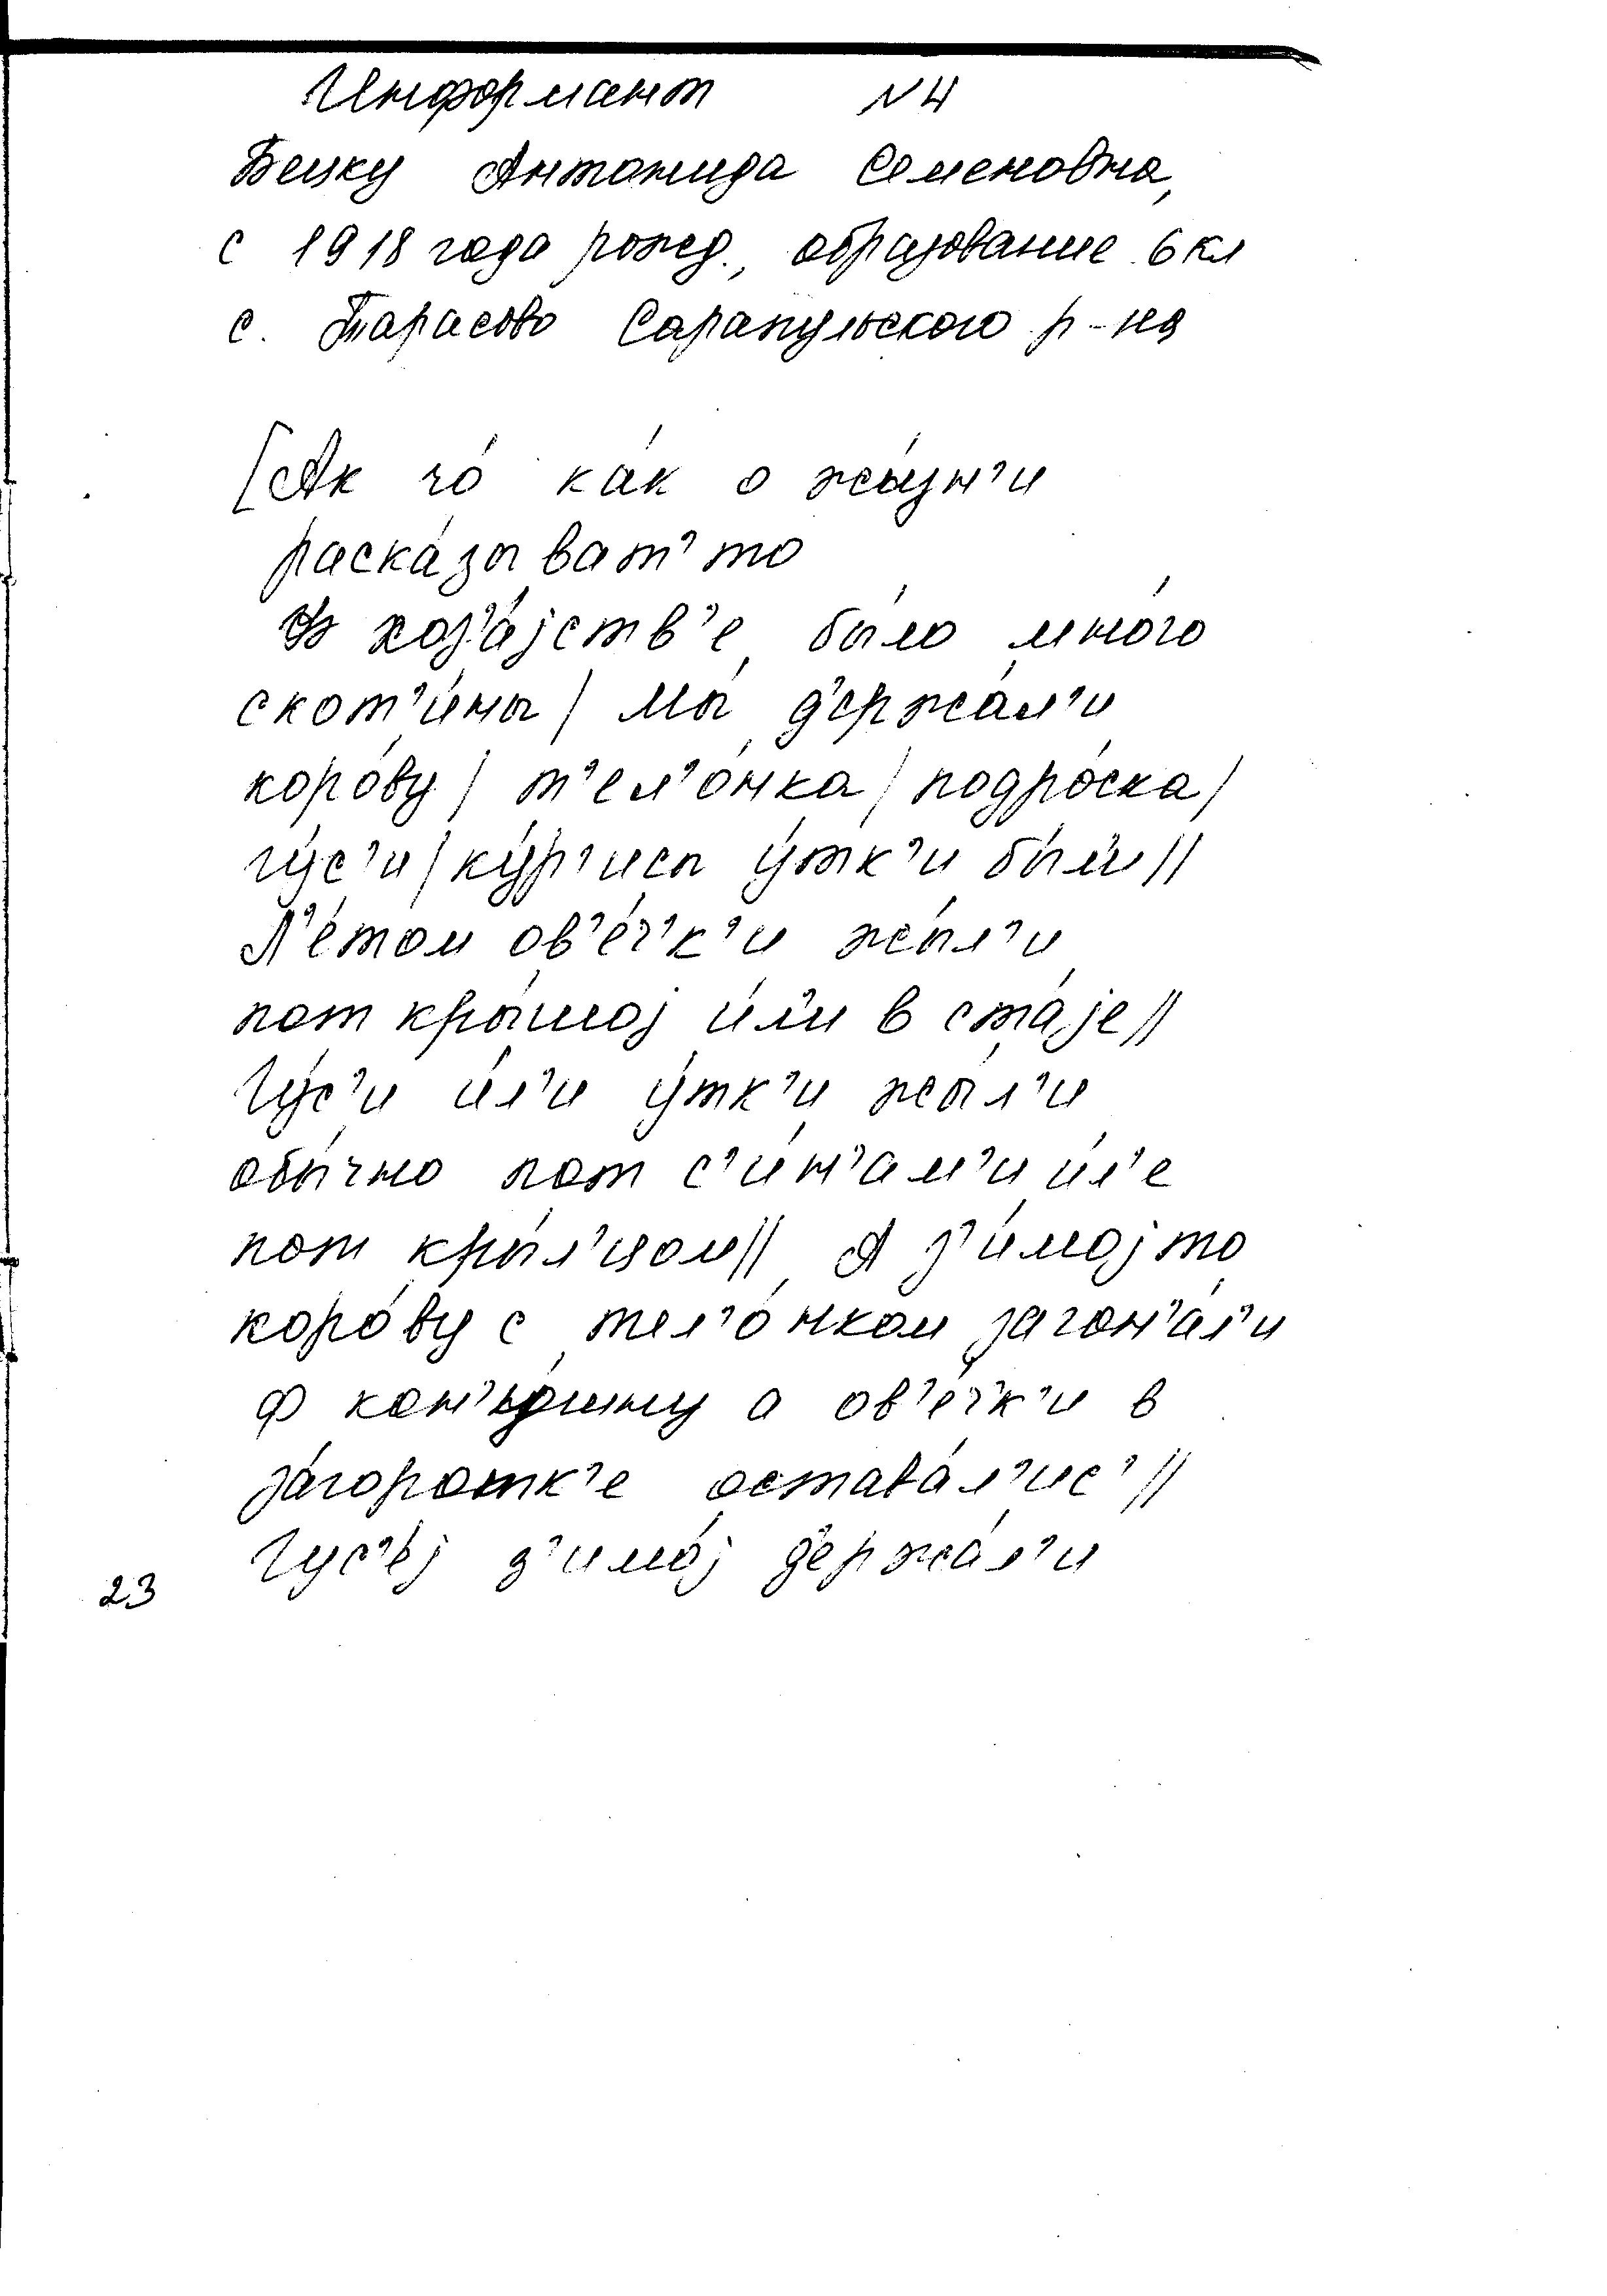 Информант N 4
Бецку Антонида Семеновна,
с 1918 года рожд., образование 6 кл
с. Тарасово Сарапульского р-на
[Ак чо́ ка́к о жы́зн'и
раска́зыват' то
В хоз'а́јств'е бы́ло мно́го
скот'и́ны / Мы́ д'ержа́л'и
коро́ву / т'ел'о́нка / подро́ска /
гу́с'и / ку́р'ицы у́тк'и бы́л'и //
Л'е́том ов'е́ч'к'и жы́л'и
пот кры́шој и́л'и в ста́је //
Гу́с'и и́л'и у́тк'и жы́л'и
обы́чно пот с'и́н'ам'и и́л'е
пот крыл'цом // А з'и́мој то
коро́ву с тел'о́нком загон'а́л'и
ф а ов'е́ч'к'и в
за́горотк'е остава́л'ис' //
Гус'е́ј з'имо́ј д'ержа́л'и
23